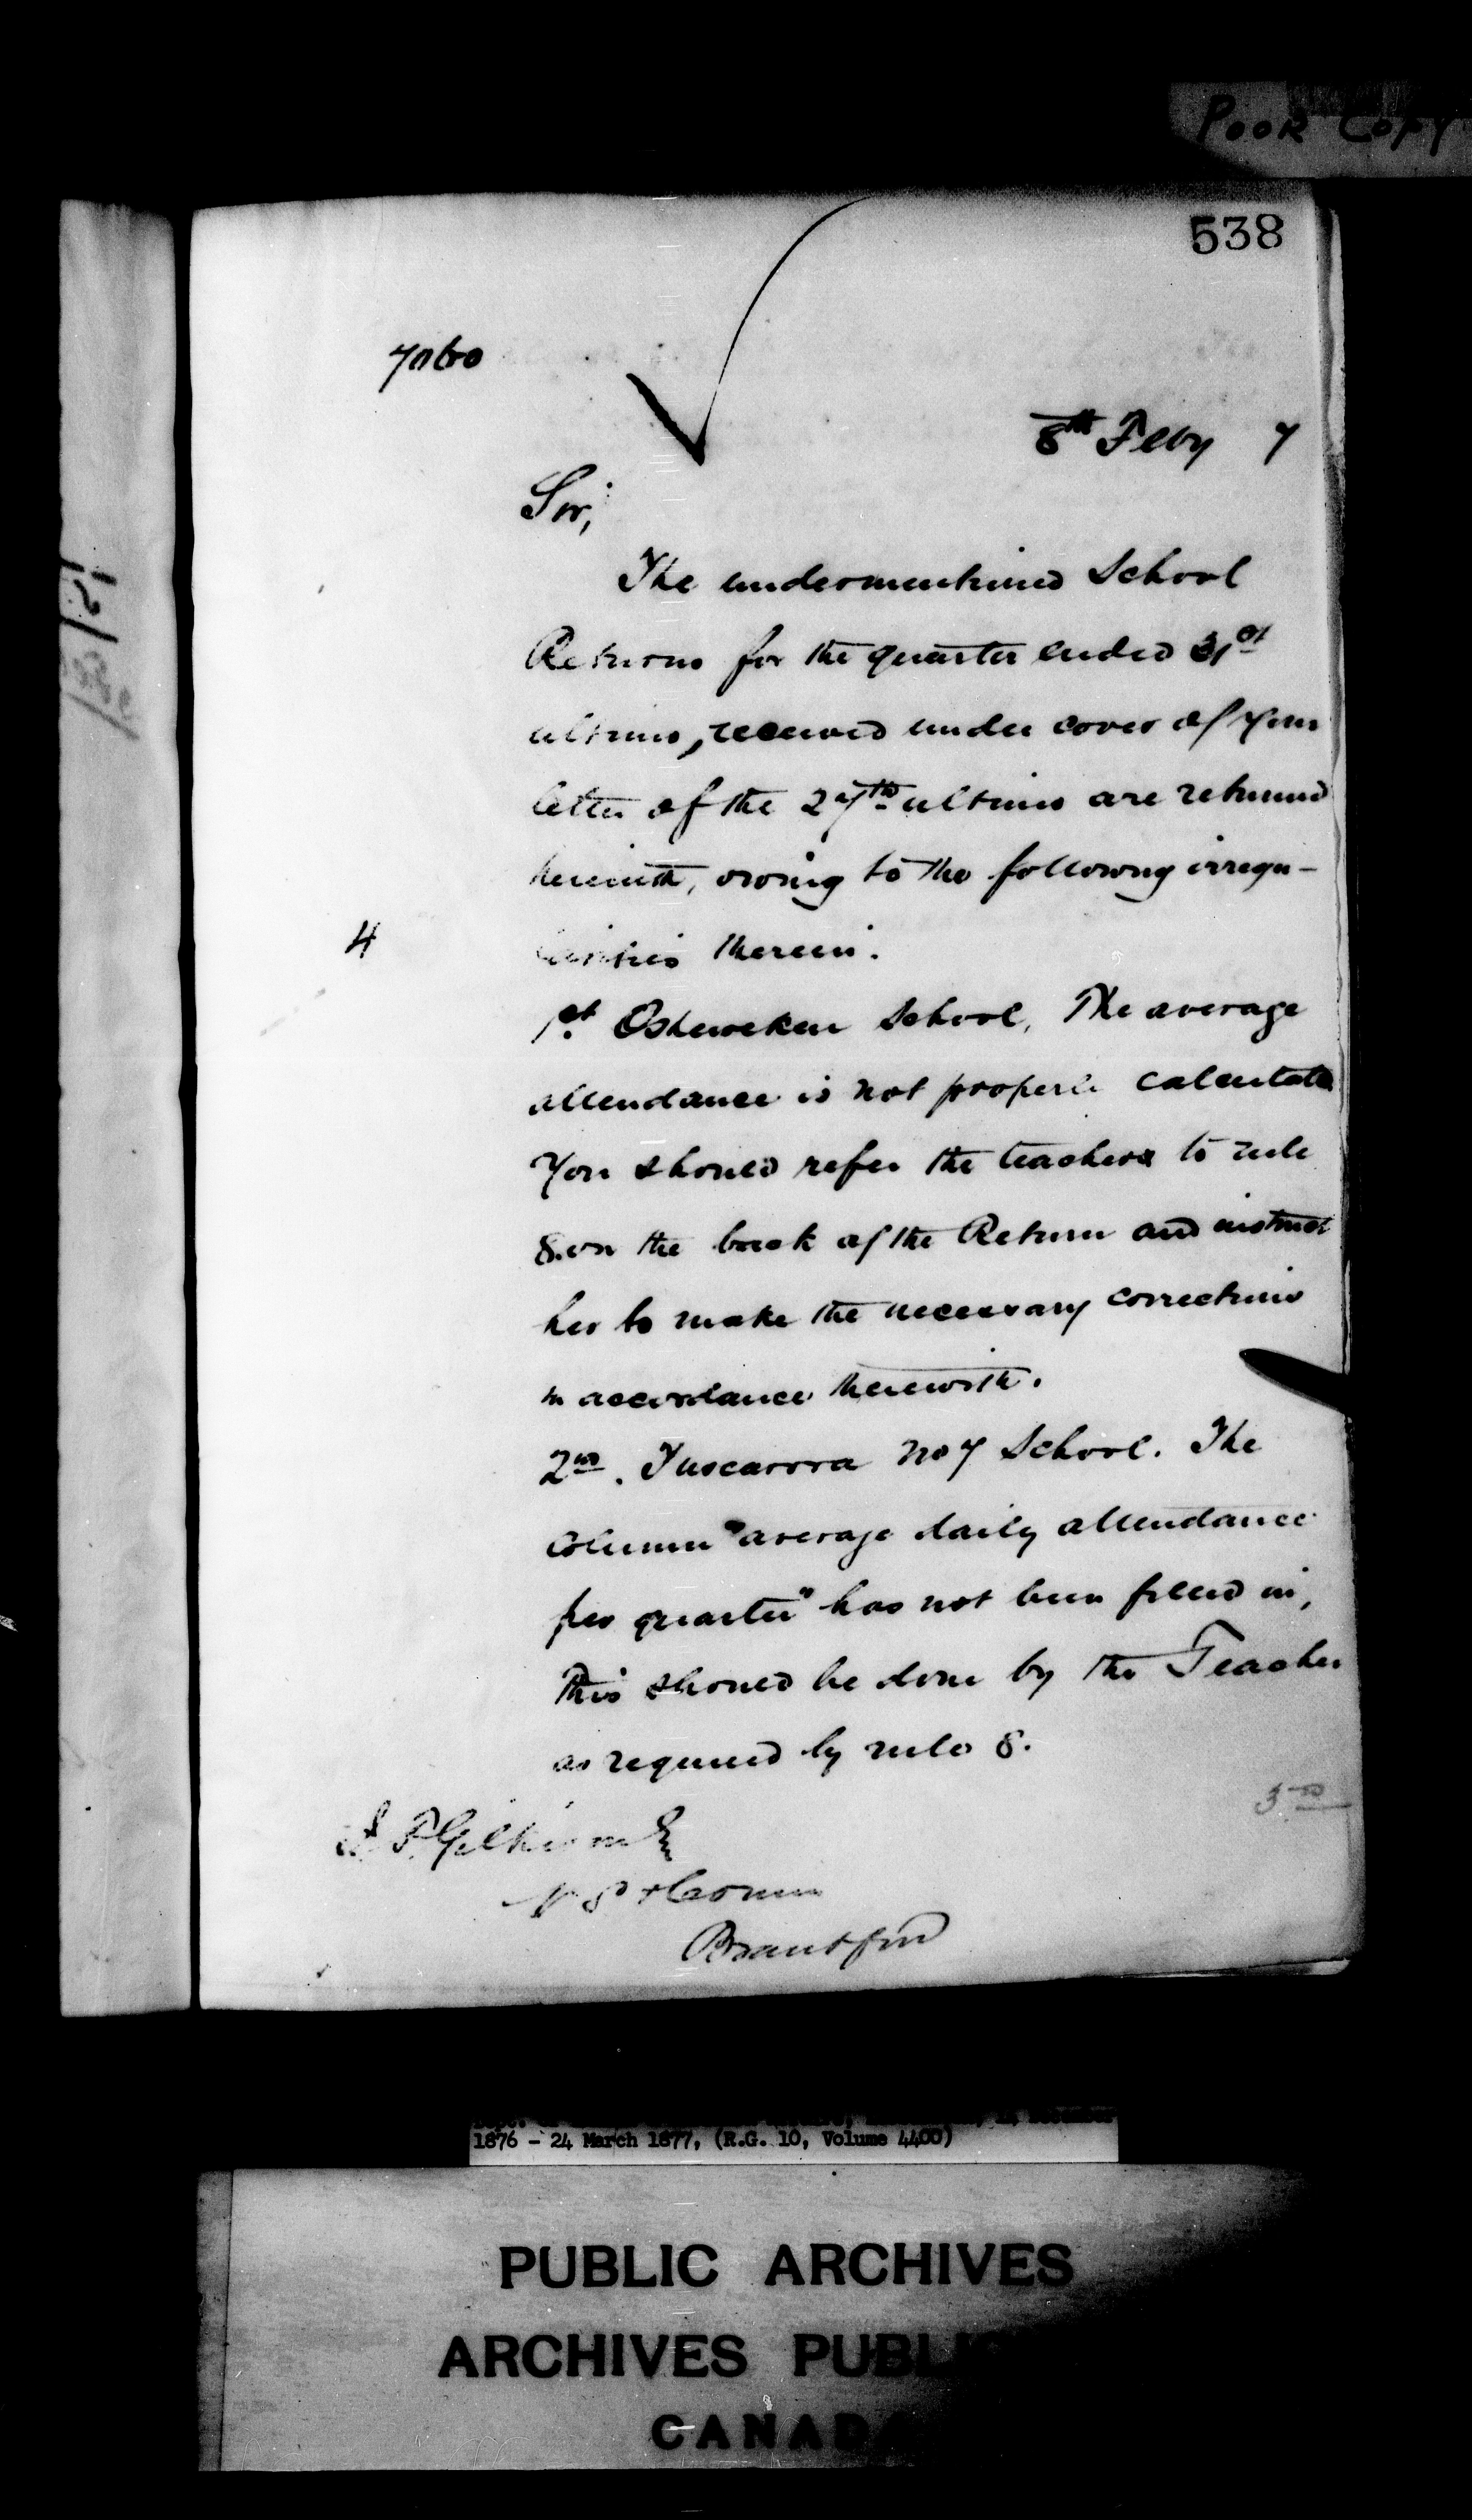 Poor Copy
538
8th Feby 7
Sir,
The undermentioned School
Returns for the quarter ended 31st
ultimo, received under cover of your
letter of the 27th ultimo are returned
herewith, owing to the following irregu-
larities therein.
4
1st Oshweken School, The average
attendance is not properly calculated
You should refer the teacher to rule
8. on the back of the Return and instruct
her to make the necessary corrections
in accordance therewith.
2nd. Tuscarora No 7 School. The
Column "average daily attendance
per quarter" has not been filled in,
This should be done by the Teacher
as required by rule 8.
3rd
J. T. Gilkison Esq
V. S. & Comm
Brantford
1876 - 24 March 1877, (R.G. 10, Volume 4400)
PUBLIC ARCHIVES
ARCHIVES PUBLI
CANADA